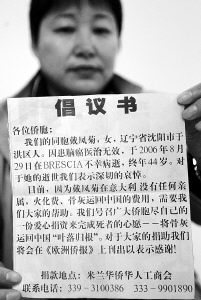 倡议书
各位侨胞：
我们的同胞戴凤菊，女，辽宁省沈阳市于
洪区人。因患脑癌医治无效，于2006年8月
29日在BRESCIA不幸病逝，终年44岁。对
于她的逝世我们表示深切的哀悼。
目前，因为戴凤菊在意大利没有任何亲
属，火化费、骨灰运回中国的费用，需要我
们大家的帮助。我们号召广大侨胞尽自己的
一份爱心捐资来完成死者的心愿——将骨灰
运回中国“叶落归根”。对于大家的捐助我们
将会在《欧洲侨报》上刊出以表示感谢！
捐款地点：米兰华侨华人工商会
联系电话：339-3100386 333-9901890